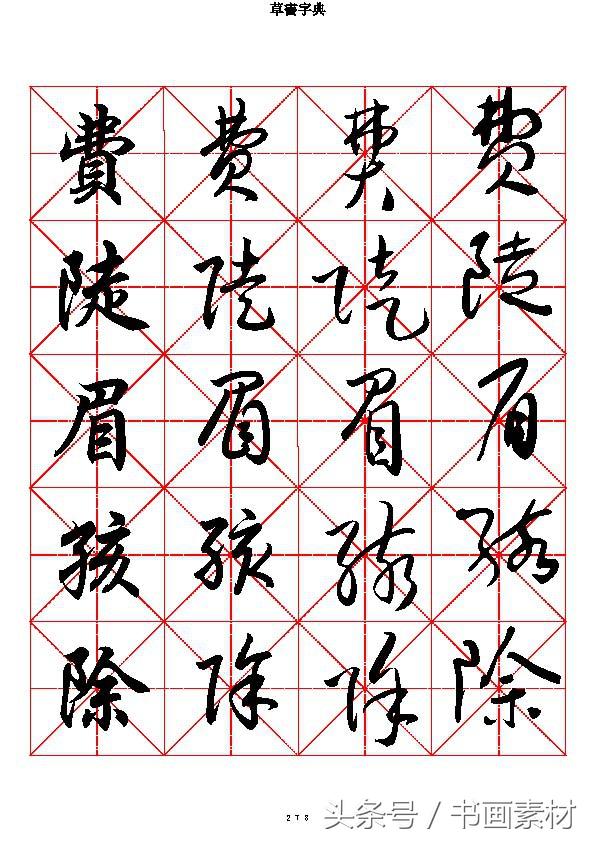 草書字典
費 費 費 費
陡 陡 陡 陡
眉 眉 眉 眉
孩 孩 孩 孩
除 除 除 除
278
头条号 / 书画素材